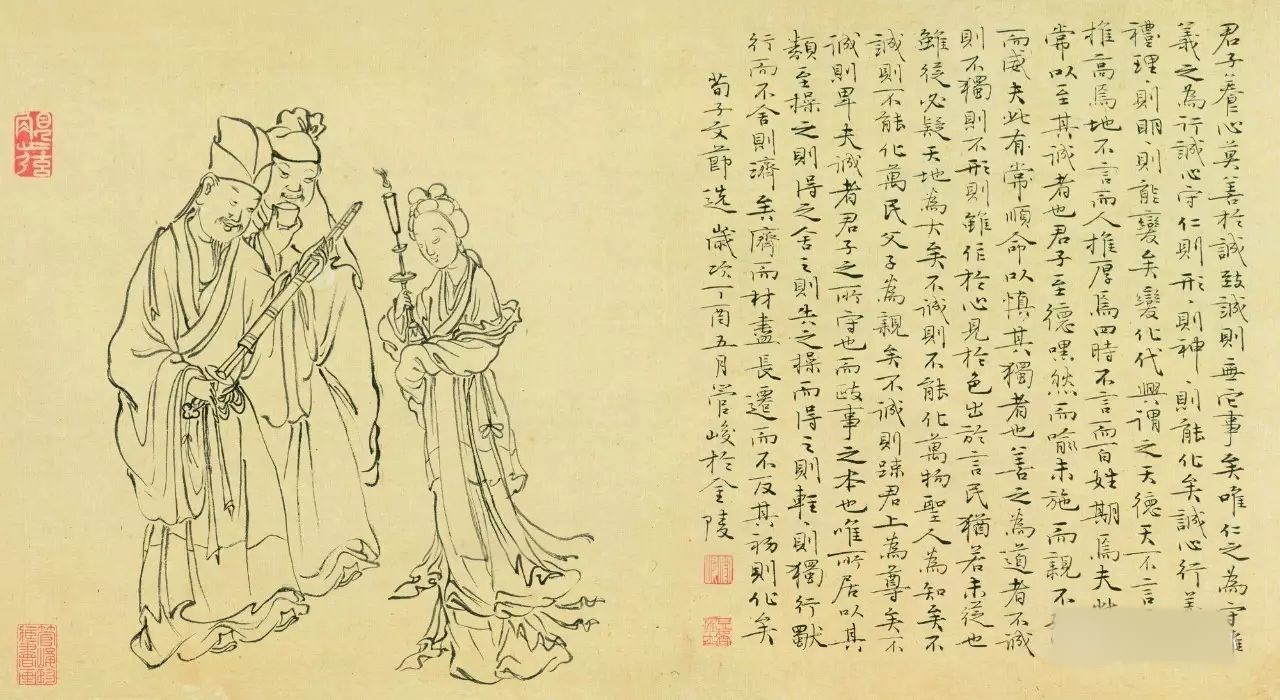 君子養心莫善於誠致誠則無它事矣唯仁之為守唯
義之為行誠心守仁則形〻則神〻則能化矣誠心行義
禮理〻則明〻則能變矣變化代興謂之天德天不言
推高焉地不言而人推厚焉四時不言而百姓期焉夫此
常以至其誠者也君子至德嘿然而喻未施而親不
而威夫此有常順命以慎其獨者也善之為道者不誠
則不獨則不形則雖作於心見於色出於言民猶若未從也
雖從必疑天地為大矣不誠則不能化萬物聖人為知矣不
誠則不能化萬民父子為親矣不誠則疎君上為尊矣不
誠則卑夫誠者君子之所守也而政事之本也唯所居以其
類至操之則得之舍之則失之操而得之則輕〻則獨行獸
行而不舍則濟矣濟而材盡長遷而不反其初則化矣
荀子文節選歲次丁酉五月管峻於金陵